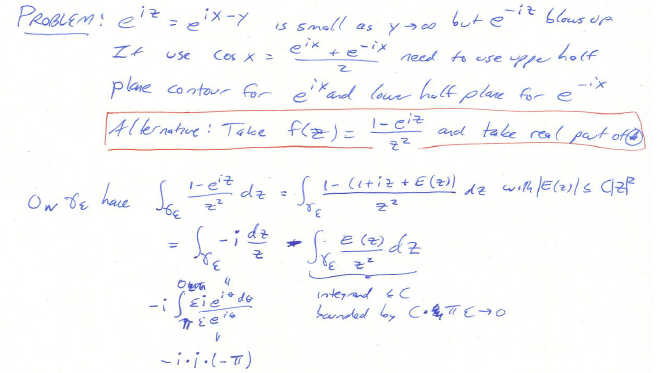 PROBLEM: e^{iz} = e^{ix-y} is small as y→∞ but e^{-iz} blows up
If use cos x = \frac{e^{ix} + e^{-ix}}{2} need to use upper half
plane contour for e^{ix} and lower half plane for e^{-ix}
Alternative: Take f(z) = \frac{1-e^{iz}}{z^2} and take real part of
On γ_ε have ∫_{γ_ε} \frac{1-e^{iz}}{z^2} dz = ∫_{γ_ε} \frac{1-(1+iz+E(z))}{z^2} dz with |E(z)| ≤ C|z|^2
= ∫_{γ_ε} -i \frac{dz}{z} - ∫_{γ_ε} \frac{E(z)}{z^2} dz
-i ∫_π^0 \frac{εie^{iθ}dθ}{εe^{iθ}} integrand ≤ C
bounded by C·πε→0
-i·i·(-π)